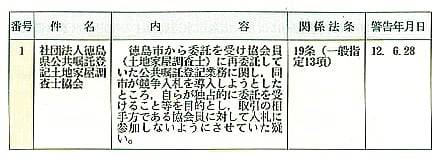 番号 件名 内容 関係法条 警告年月日
1
社団法人徳島
県公共嘱託登
記土地家屋調
査士協会
徳島市から委託を受け協会員
(土地家屋調査士)に再委託し
ていた公共嘱託登記業務に関し,同
市が競争入札を導入しようとした
ところ,自らが独占的に委託を受
けること等を目的とし,取引の相
手方である協会員に対して入札に
参加しないようにさせていた疑
い。
19条(一般指
定13項)
12. 6.28